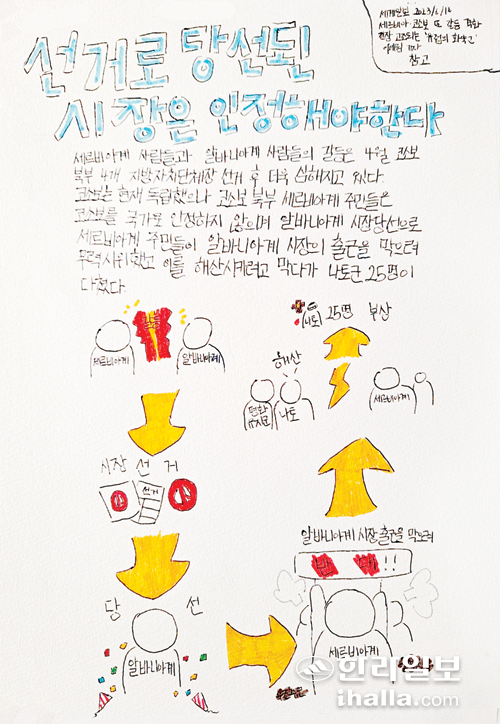 세계일보 2023/6/12
세르비아 코소보 또 갈등 격화
긴장 고조되는 '유럽의 화약고'
기자
참고
선거로 당선된
시장은 인정해야한다
세르비아계 사람들과 알바니아계 사람들의 갈등은 4월 코소보
북부 4개 지방자치단체장 선거 후 더욱 심해지고 있다
코소보는 현재 독립했으나 코소보 북부 세르비아계 주민들은
코소보를 국가로 인정하지 않으며 알바니아계 시장당선으로
세르비아계 주민들이 알바니아계 시장의 출근을 막으려
무력시위했고 이를 해산시키려고 막다가 나토군 25명이
다쳤다
갈등
세르비아계
알바니아계
(나토) 25명 부상
해산
평화유지군
나토
세르비아계
시장 선거
선거
알바니아계 시장 출근을 막으려
반대!!
당 선
알바니아계
세르비아계
한라일보
ihalla.com